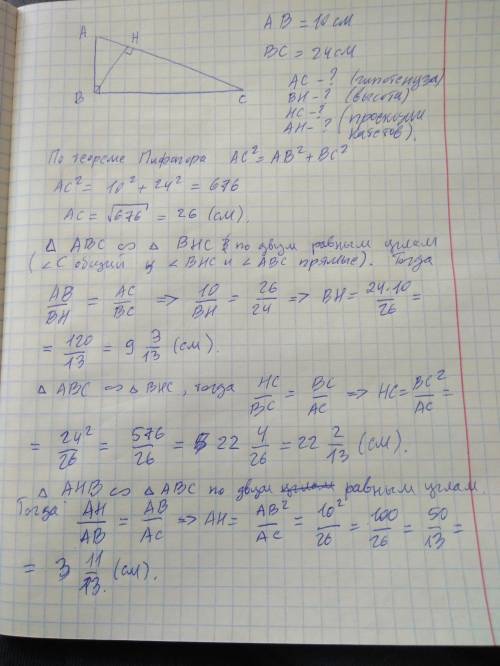 A H B C
AB = 10 см
BC = 24 см
AC - ? (гипотенуза)
BH - ? (высота)
HC - ? (проекции
AH - ? катетов).
По теореме Пифагора AC² = AB² + BC²
AC² = 10² + 24² = 676
AC = √676 = 26 (см).
△ ABC ∽ △ BHC по двум равным углам
(∠C общий и ∠BHC и ∠ABC прямые). Тогда
AB/BH = AC/BC => 10/BH = 26/24 => BH = 24·10/26 =
= 120/13 = 9 3/13 (см).
△ ABC ∽ △ BHC, тогда HC/BC = BC/AC => HC = BC²/AC =
= 24²/26 = 576/26 = 22 4/26 = 22 2/13 (см).
△ AHB ∽ △ ABC по двум равным углам.
Тогда AH/AB = AB/AC => AH = AB²/AC = 10²/26 = 100/26 = 50/13 =
= 3 11/13 (см).